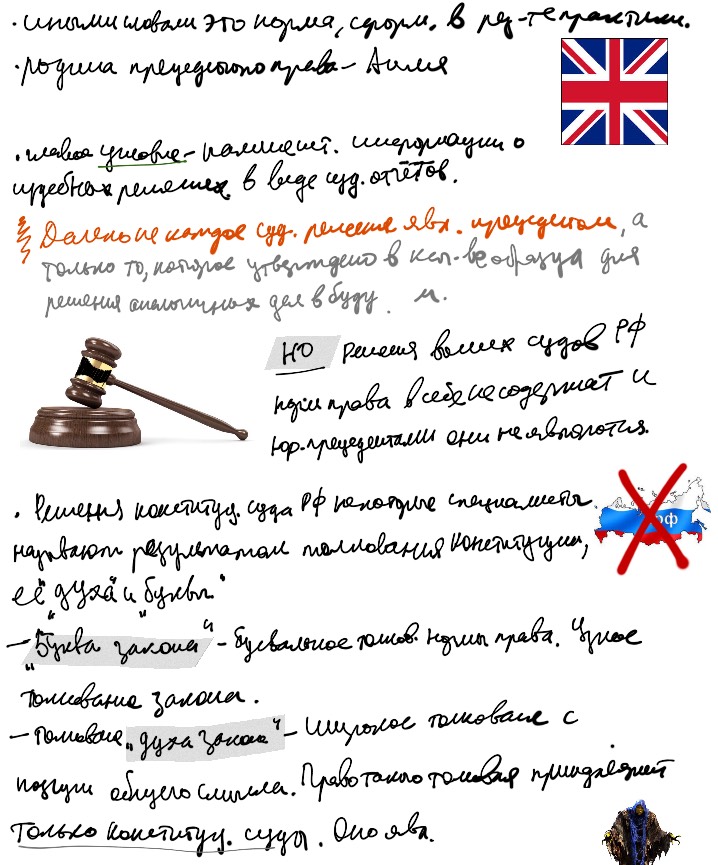 · иными словами это норма, сформ. в рез-те практики.
· Родина прецедентного права – Англия
· главное условие – наличие инт. информации о
судебных решениях в виде суд. отчётов.
Далеко не каждое суд. решение явл. прецедентом, а
только то, которое утверждено в кач-ве образца для
решения аналогичных дел в буду.
НО Решения высших судов РФ
норм права в себе не содержат и
юр. прецедентами они не являются.
· Решения конституц. суда РФ некоторые специалисты
называют результатом толкования Конституции,
её "духа" и "буквы"
– "Буква закона" – буквальное толков. нормы права. Узкое
толкование закона.
– толкование "духа закона" – широкое толкование с
позиции общего смысла. Право такого толкования принадлежит
только конституц. суды. Оно явл.
рф